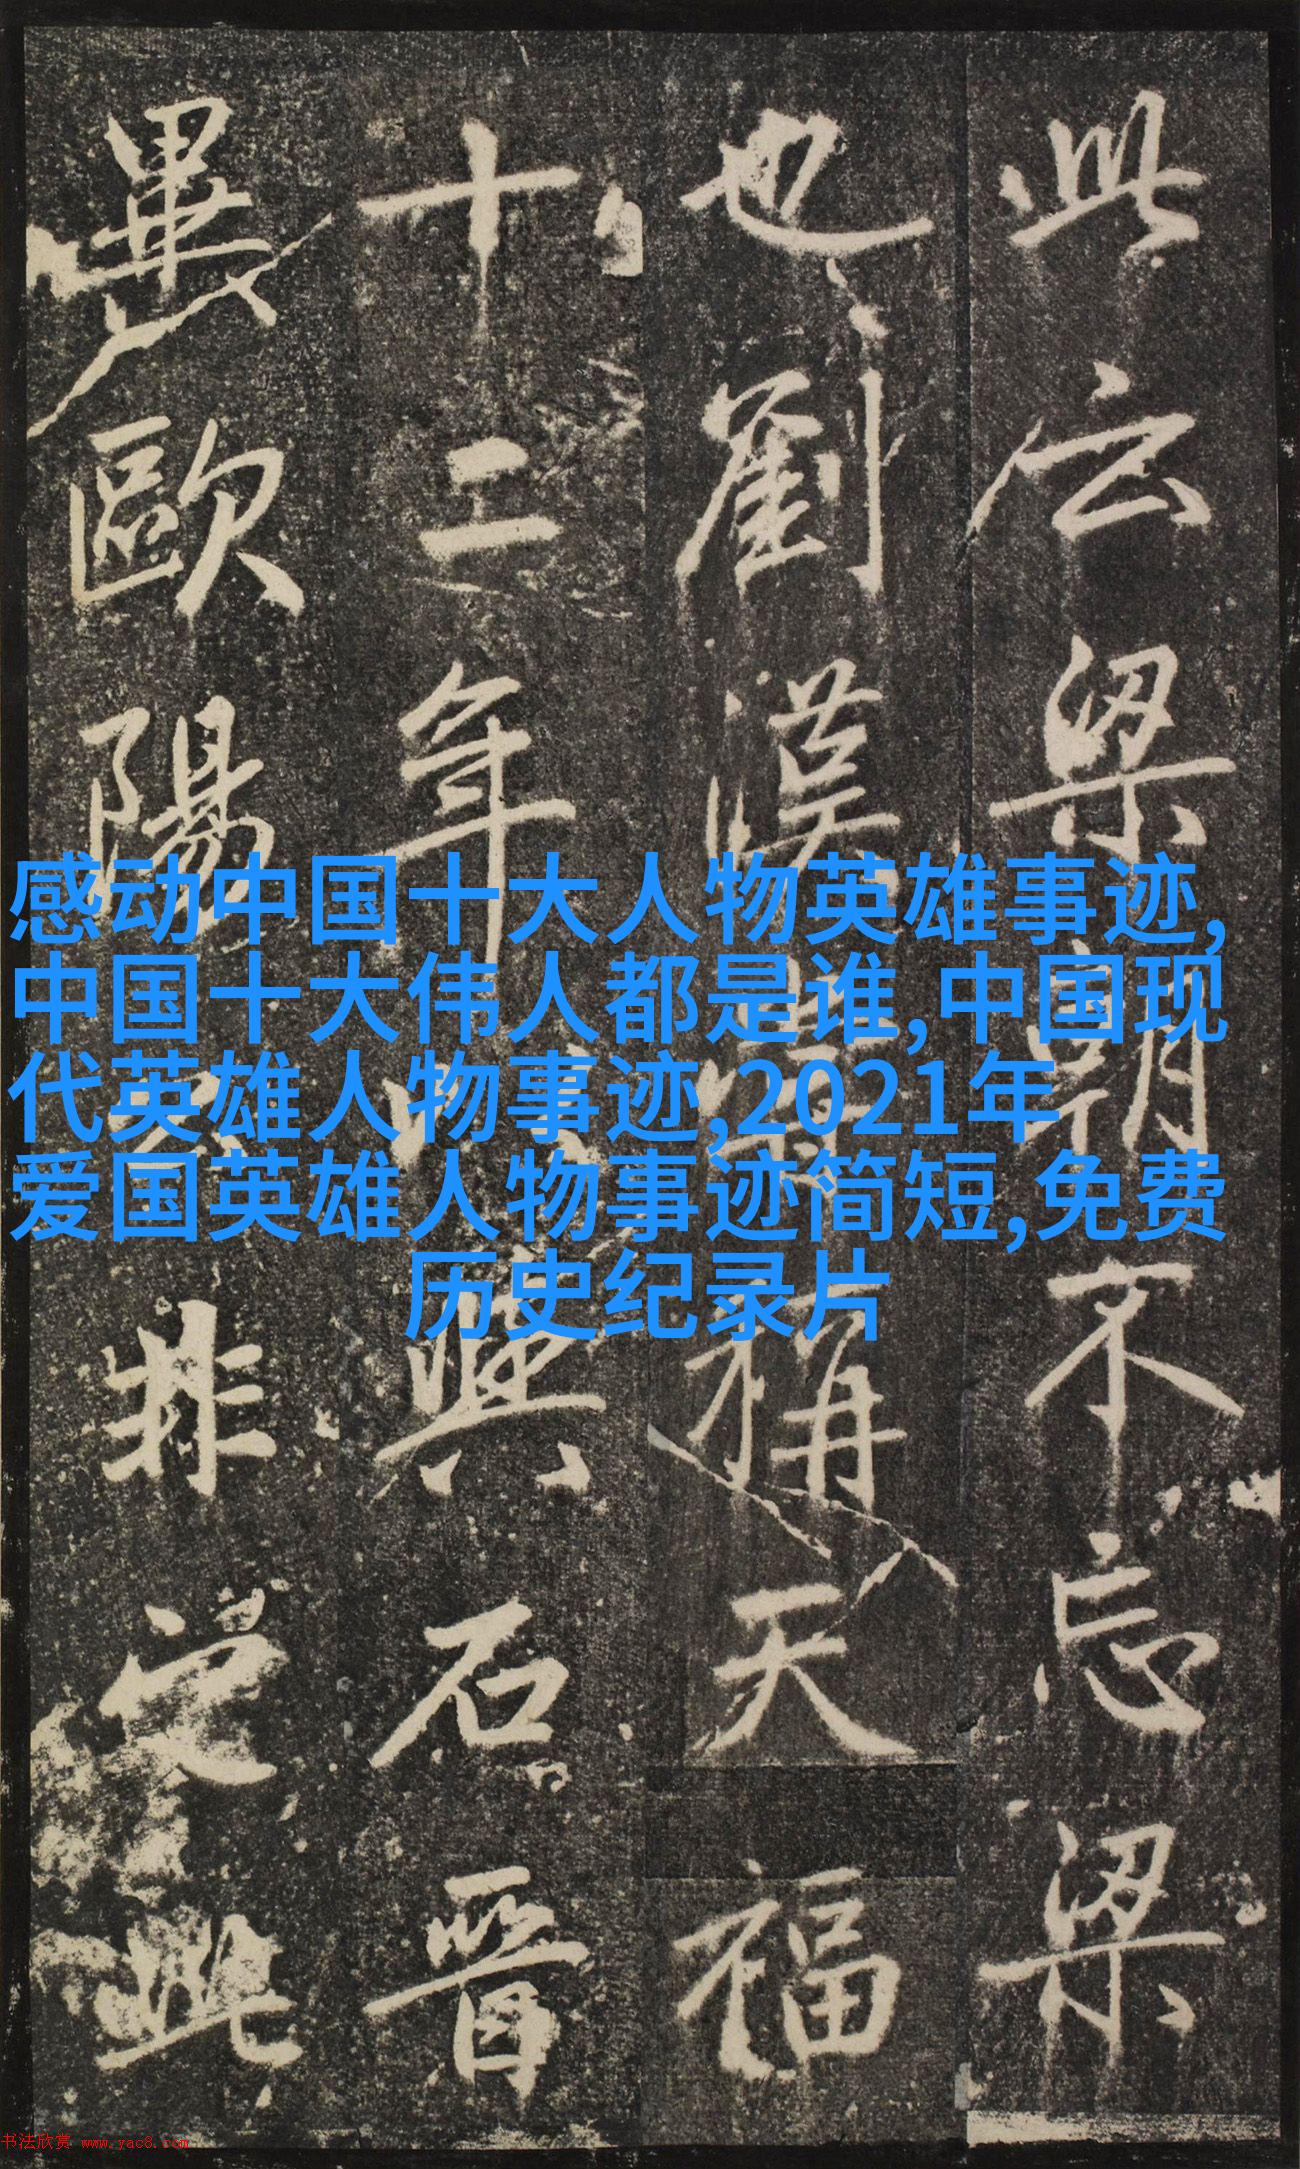 此云梁朝不忘梁
也劉漢稱天福
十二年與石晉
畢歐陽非此
感动中国十大人物英雄事迹,
中国十大伟人都是谁,中国现
代英雄人物事迹,2021年
爱国英雄人物事迹简短,免费
历史纪录片
书法欣赏 www.yac8.com